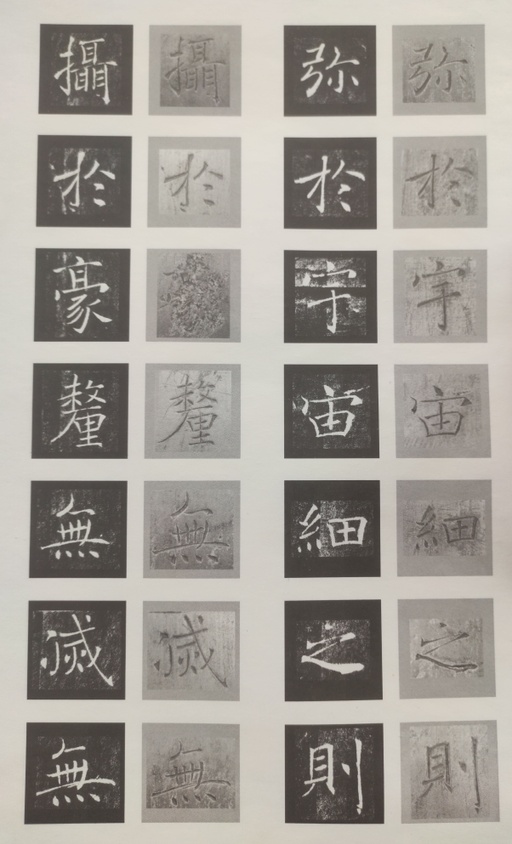 弥於宇宙細之則
弥於宇宙細之則
攝於釐無滅無
攝於豪釐無滅無